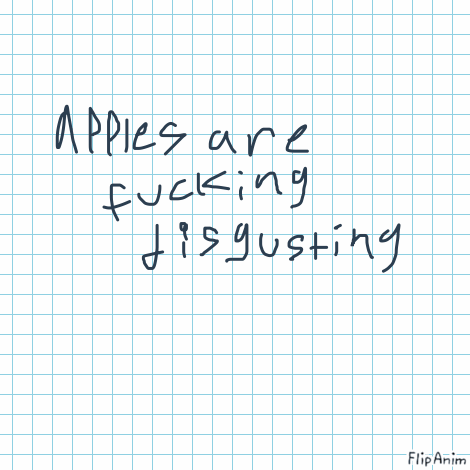 Apples are
fucking
disgusting
FlipAnim